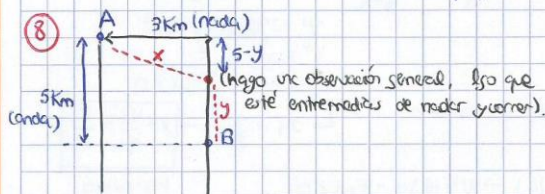 8
A
3Km (nada)
x
5-y
(hago una observación general, que
esté entremedias de nadar y correr).
5Km
(anda)
y
B